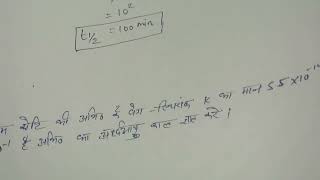 = 10²
t1/2 = 100 min
कोटि की अभिo के वेग स्थिरांक K का मान 5.5×10⁻¹
है अभिo का अर्धआयु काल ज्ञात करे।